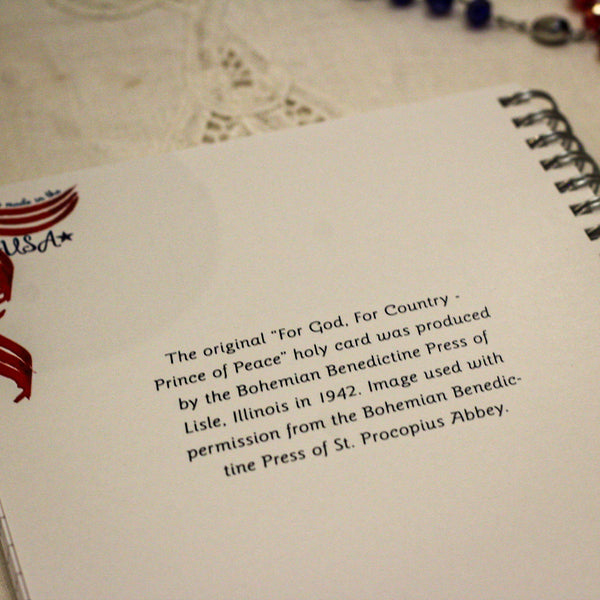 made in the
USA
The original "For God, For Country -
Prince of Peace" holy card was produced
by the Bohemian Benedictine Press of
Lisle, Illinois in 1942. Image used with
permission from the Bohemian Benedic-
tine Press of St. Procopius Abbey.